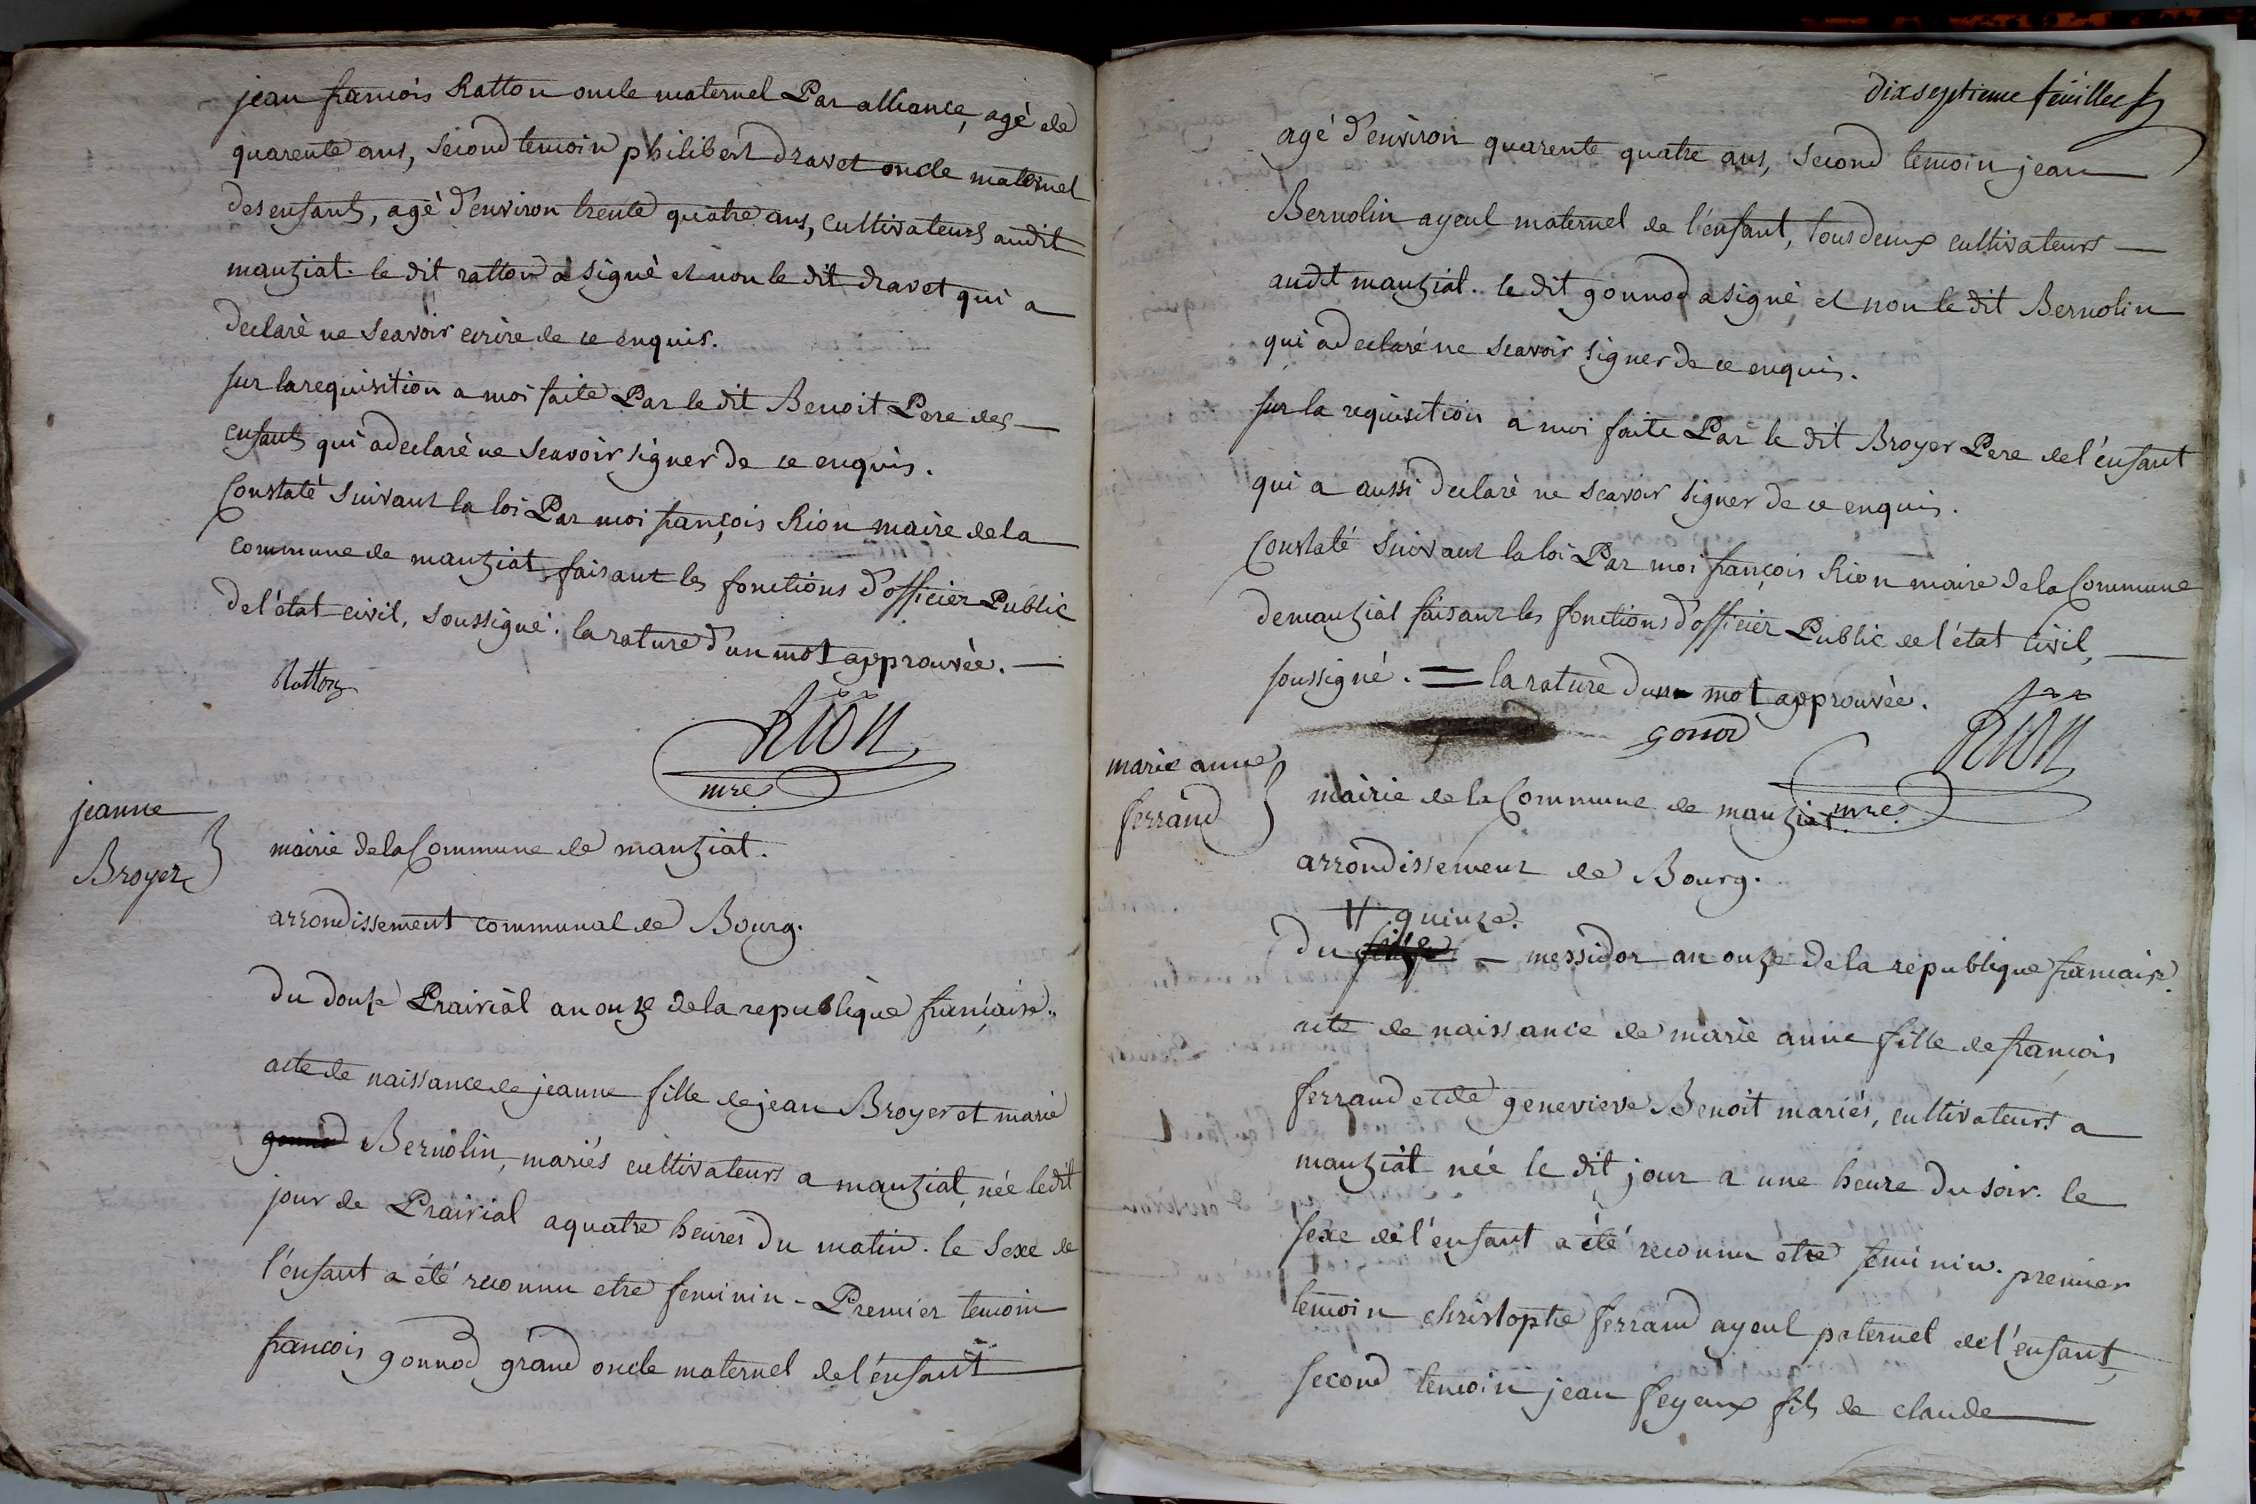 jean francois Ratton oncle maternel Par alliance, agé de
quarente ans, second temoin philibert dravet oncle maternel
des enfants, agé d'environ trente quatre ans, cultivateurs audit
manziat. le dit ratton a signé et non le dit dravet qui a
declaré ne scavoir ecrire de ce enquis.
sur la requisition a moi faite Par le dit Benoit Pere des
enfants qui a declaré ne scavoir signer de ce enquis.
Constaté suivant la loi Par moi françois Rion maire de la
commune de manziat, faisant les fonctions d'officier Public
de l'état civil, soussigné. la rature d'un mot approuvée.
Ratton
Rion
mre
jeanne
Broyer
mairie de la Commune de manziat.
arrondissement communal de Bourg.
du douze Prairial an onze de la republique françaïse.
acte de naissance de jeanne fille de jean Broyer et marie
gonnod Bernolin, mariés cultivateurs a manziat, née ledit
jour de Prairial a quatre heures du matin. le sexe de
l'enfant a été reconnu etre feminin - Premier temoin
francois gonnod grand oncle maternel de l'enfant
dix septieme feüillet
agé d'environ quarente quatre ans, second temoin jean
Bernolin ayeul maternel de l'enfant, tous deux cultivateurs
audit manziat. le dit gonnod a signé et non le dit Bernolin
qui a declaré ne scavoir signer de ce enquis.
sur la requisition a moi faite Par le dit Broyer Pere de l'enfant
qui a aussi declaré ne scavoir signer de ce enquis.
Constaté suivant la loi Par moi françois Rion maire de la Commune
de manziat faisant les fonctions d'officier Public de l'état civil,
soussigné. = la rature d'un mot approuvée.
gonod
Rion
mre
marie anne
ferrand
mairie de la Commune de manziat
arrondissement de Bourg.
quinze.
du - messidor an onze de la republique francaise.
acte de naissance de marie anne fille de françois
ferrand et de genevieve Benoit mariés, cultivateurs a
manziat née le dit jour a une heure du soir. le
sexe de l'enfant a été reconnu etre feminin. premier
temoin christophe ferrand ayeul paternel de l'enfant,
second temoin jean feyeux fils de claude